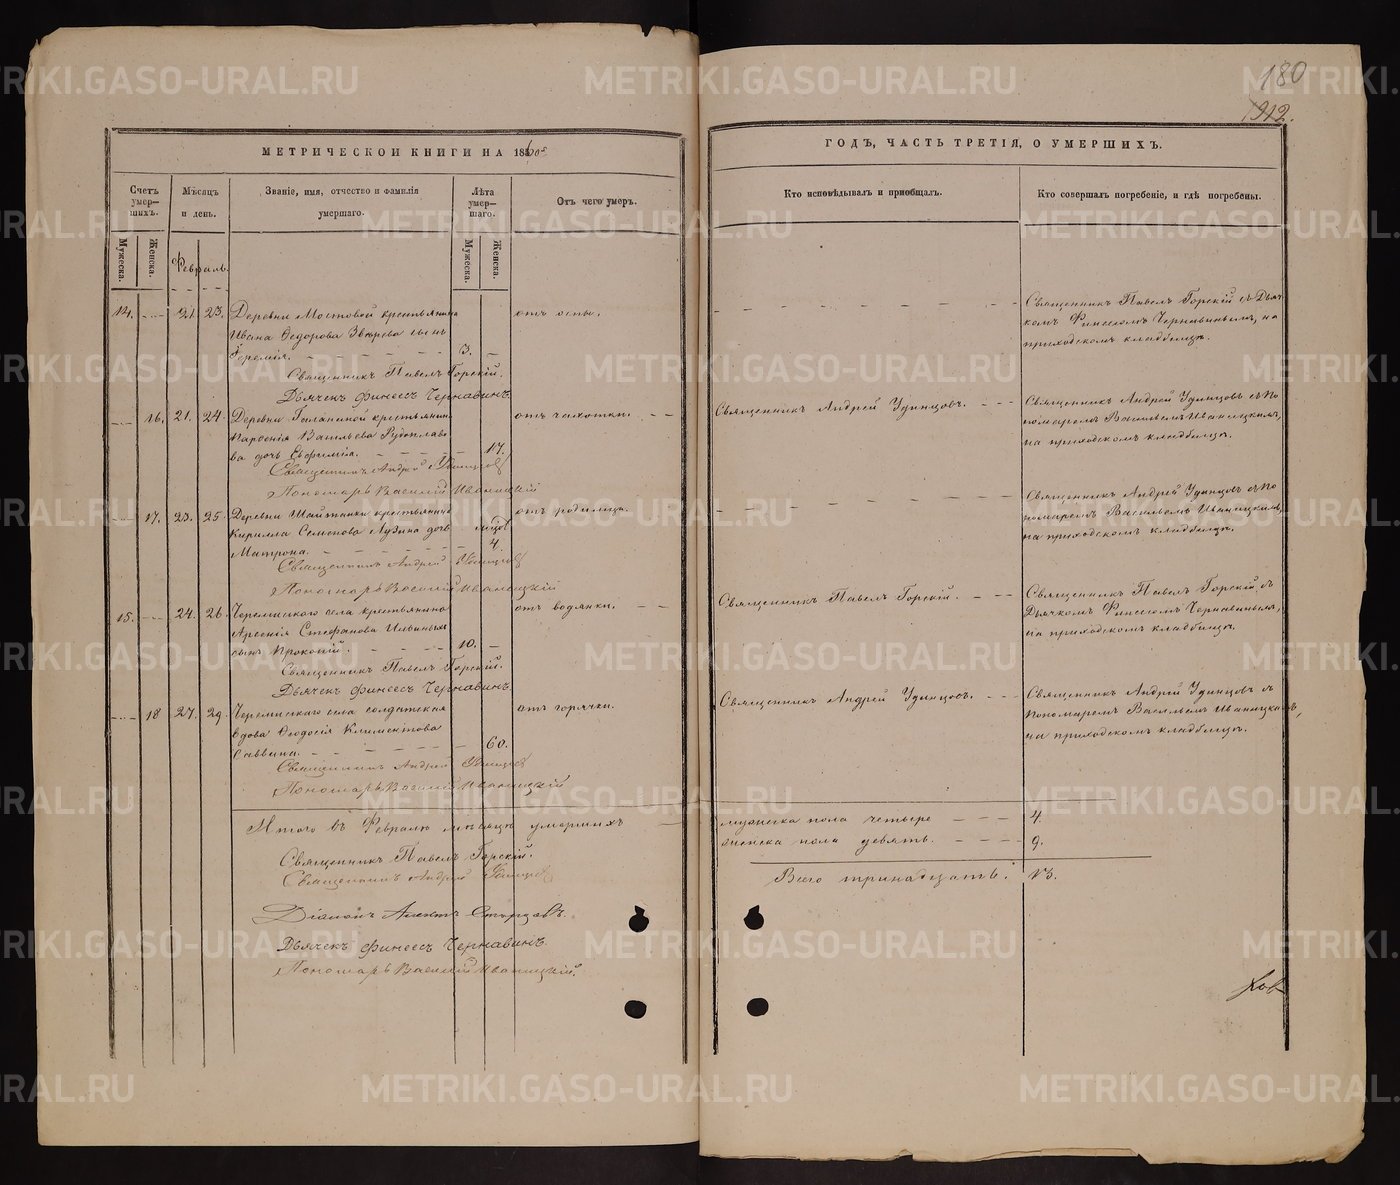 180
912.
МЕТРИЧЕСКОЙ КНИГИ НА 1860й
ГОДЪ, ЧАСТЬ ТРЕТІЯ, О УМЕРШИХЪ.
Счетъ умер—шихъ.
Мѣсяцъ и день.
Званіе, имя, отчество и фамилія умершаго.
Лѣта умер—шаго.
Отъ чего умеръ.
Кто исповѣдывалъ и пріобщалъ.
Кто совершалъ погребеніе, и гдѣ погребены.
Мужеска.
Женска.
Февраль.
Мужеска.
Женска.
14. 21. 23. Деревни Мостовой крестьянина
Ивана Федорова Звѣрева сынъ
Іеремія. 3.
отъ оспы.
Священникъ Павелъ Горскій съ Дьяч-
комъ Финеесомъ Чернавинымъ, на
приходскомъ кладбищѣ.
Священникъ Павелъ Горскій.
Дьячекъ Финеесъ Чернавинъ.
16. 21. 24. Деревни крестьянина
Парфенія Васильева
ва дочь Евфимія. 17.
отъ чахотки.
Священникъ Андрей Удинцовъ.
Священникъ Андрей Удинцовъ съ По-
номаремъ Васильемъ Иваницкимъ,
на приходскомъ кладбищѣ.
Священникъ Андрей Удинцовъ
Пономарь Василій Иваницкій
17. 23. 25. Деревни Шайтанки крестьянина
Кирилла Семенова Лузина дочь
Матрона. 4.
отъ родимца.
Священникъ Андрей Удинцовъ съ По-
номаремъ Васильемъ Иваницкимъ,
на приходскомъ кладбищѣ.
Священникъ Андрей Удинцовъ
Пономарь Василій Иваницкій
15. 24. 26. Черемисскаго села крестьянина
Арсенія Стефанова Ильиныхъ
сынъ Прокопій. 10.
отъ водянки.
Священникъ Павелъ Горскій.
Священникъ Павелъ Горскій съ
Дьячкомъ Финеесомъ Чернавинымъ,
на приходскомъ кладбищѣ.
Священникъ Павелъ Горскій.
Дьячекъ Финеесъ Чернавинъ.
18 27. 29. Черемисскаго села солдатская
вдова Феодосія Климентова
Саввина. 60.
отъ горячки.
Священникъ Андрей Удинцовъ.
Священникъ Андрей Удинцовъ съ
Пономаремъ Васильемъ Иваницкимъ,
на приходскомъ кладбищѣ.
Священникъ Андрей Удинцовъ
Пономарь Василій Иваницкій
Итого въ Февралѣ мѣсяцѣ умершихъ
мужеска пола четыре 4.
женска пола девять. 9.
Всего тринадцать. 13.
Священникъ Павелъ Горскій.
Священникъ Андрей Удинцовъ
Діаконъ
Дьячекъ Финеесъ Чернавинъ.
Пономарь Василій Иваницкій.
METRIKI.GASO-URAL.RU